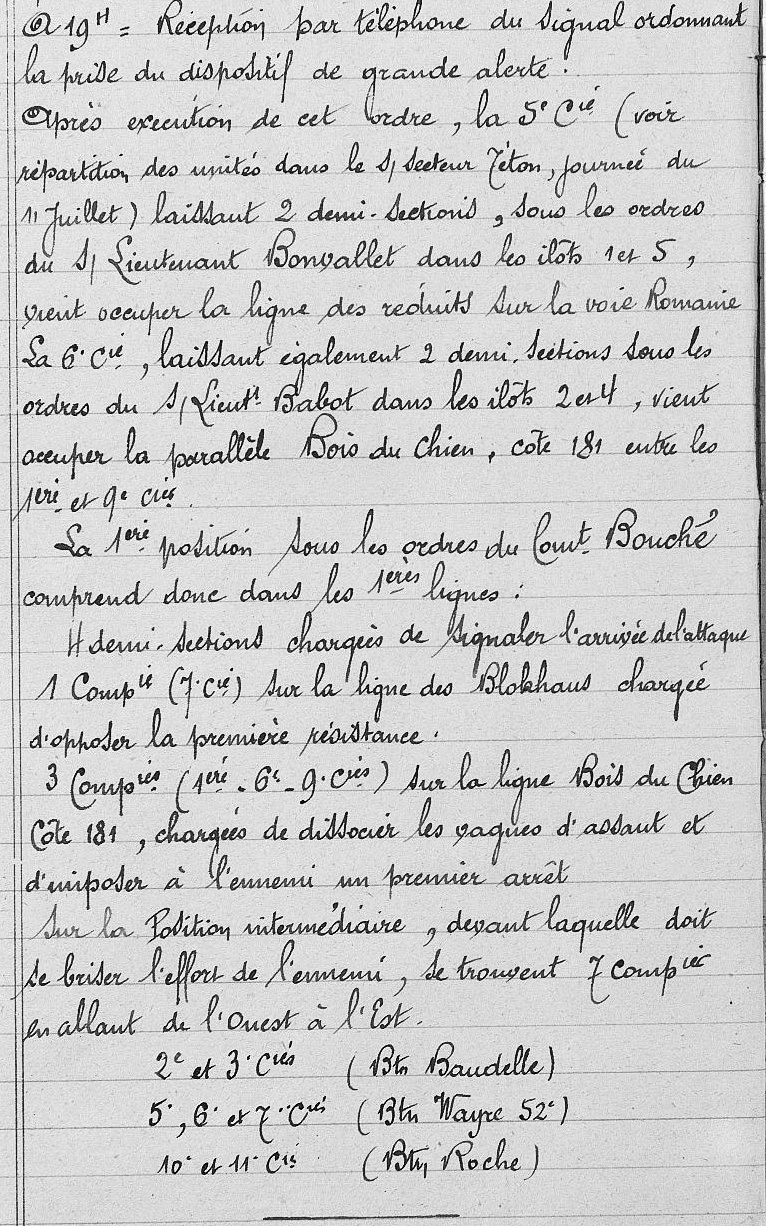 A 19H = Réception par téléphone du signal ordonnant
la prise du dispositif de grande alerte.
Après execution de cet ordre, la 5e Cie (voir
répartition des unités dans le s/secteur Téton, journée du
11 Juillet) laissant 2 demi-sections, sous les ordres
du S/Lieutenant Bonvallet dans les ilôts 1 et 5,
vient occuper la ligne des reduits sur la voie Romaine
La 6e Cie, laissant également 2 demi-sections sous les
ordres du S/Lieutt Babot dans les ilôts 2 et 4, vient
occuper la parallèle Bois du Chien, côte 181 entre les
1ère et 9e Cies.
La 1ère position sous les ordres du Comt Bouché
comprend donc dans les 1ères lignes :
4 demi-sections chargées de signaler l'arrivée de l'attaque
1 Compie (7e Cie) sur la ligne des Blokhaus chargée
d'opposer la première résistance.
3 Compies (1ère - 6e - 9e Cies) sur la ligne Bois du Chien
Côte 181, chargées de dissocier les vagues d'assaut et
d'imposer à l'ennemi un premier arrêt
Sur la Position intermédiaire, devant laquelle doit
se briser l'effort de l'ennemi, se trouvent 7 compies
en allant de l'Ouest à l'Est.
2e et 3e Cies (Btn Baudelle)
5e, 6e et 7e Cies (Btn Wayre 52e)
10e et 11e Cies (Btn Roche)